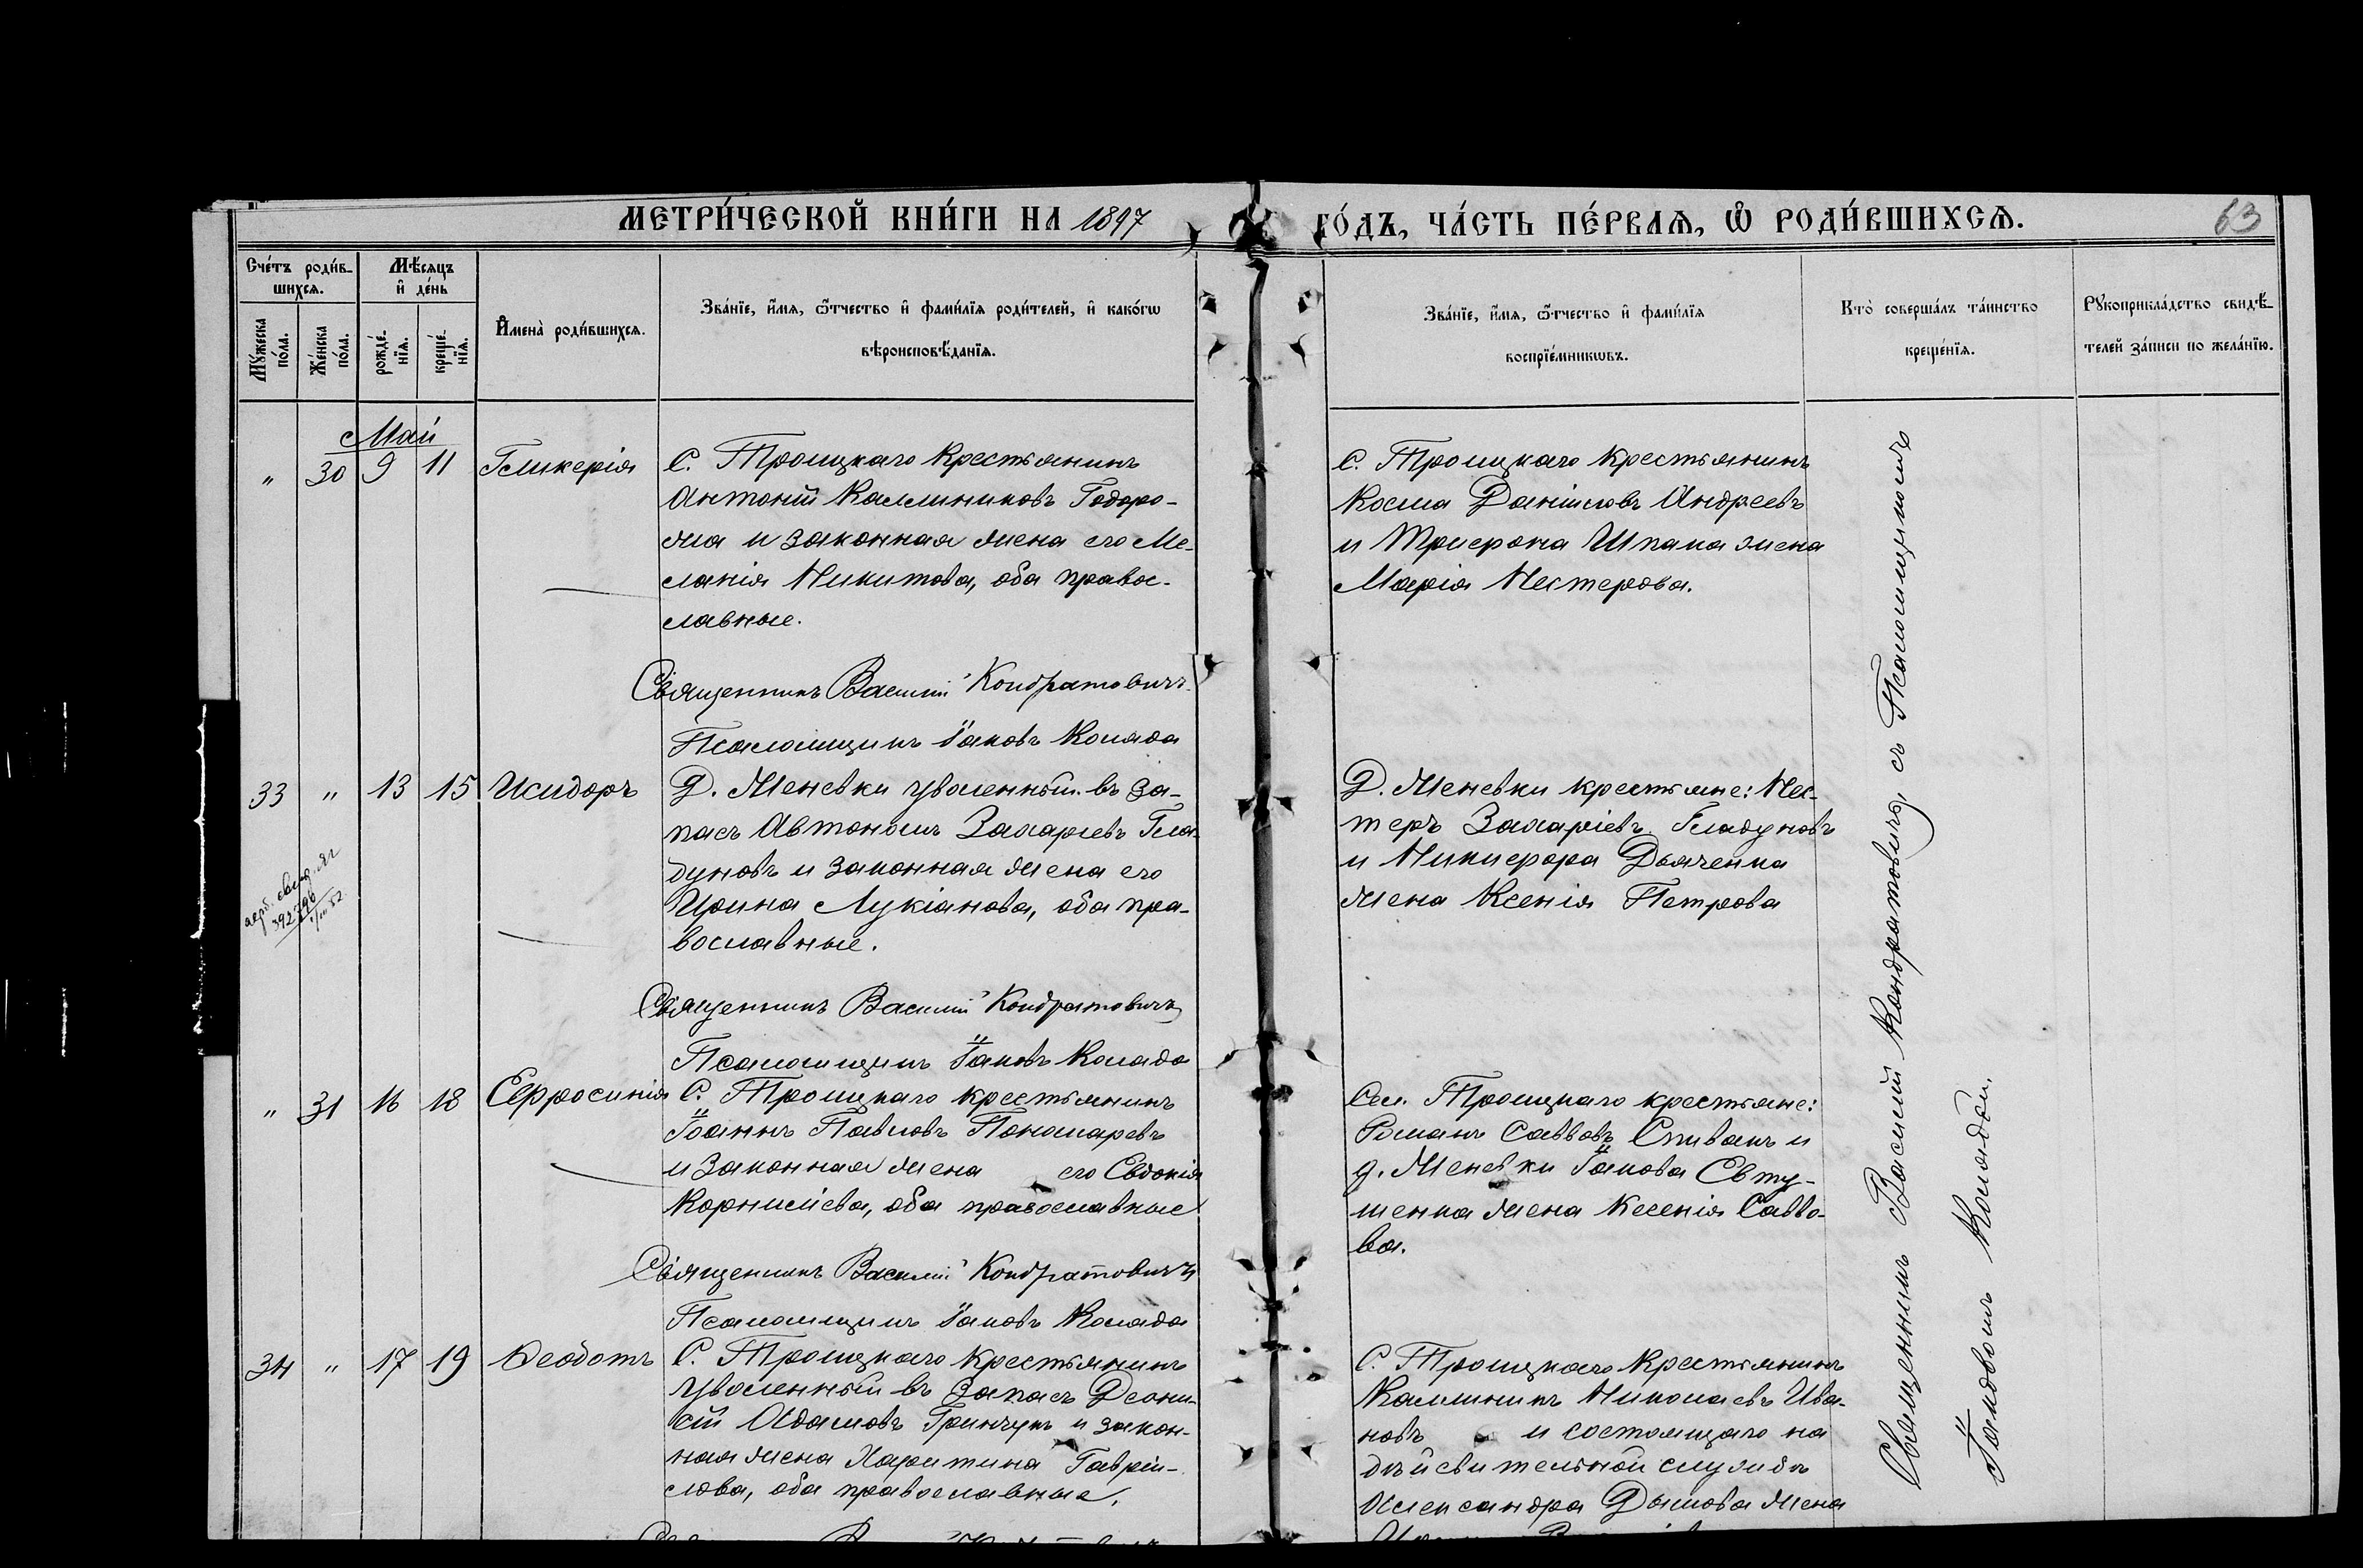 МЕТРИ́ЧЕСКОЙ КНИ́ГИ НА 1897
ГО́ДЪ, ЧА́СТЬ ПЕ́РВАѦ, Ѽ РОДИ́ВШИХСѦ.
63
Сче́тъ роди́в-
шихсѧ.
Мѣ́сѧцъ
и҆ де́нь
Мꙋ́жеска
по́ла.
Же́нска
по́ла.
рожде́-
нїѧ.
креще́-
нїѧ.
И҆мена̀ роди́вшихсѧ.
Зва́нїе, и҆́мѧ, ѻ҆́тчество и҆ фами́лїѧ роди́телей, и҆ како́гѡ
вѣроисповѣ́данїѧ.
Зва́нїе, и҆́мѧ, ѻ҆́тчество и҆ фами́лїѧ
воспрїе́мникѡвъ.
Кто̀ соверша́лъ та́инство
креще́нїѧ.
Рꙋкоприкла́дство свидѣ́-
телей за́писи по жела́нїю.
Май
" 30 9 11 Гликерія
С. Троицкаго крестьянинъ
Антоній Каллиниковъ Годоро-
жа и законная жена его Ме-
ланія Никитова, оба правос-
лавные.
Священникъ Василій Кондратовичъ
Псаломщикъ Іаковъ Колада
С. Троицкаго крестьянинъ
Косма Даніиловъ Андреевъ
и Трифона Шпака жена
Марія Нестерова.
33 " 13 15 Исидоръ
392796
Д. Женевки уволенный въ за-
пасъ Автономъ Захаріевъ Гла-
дуновъ и законная жена его
Ирина Лукіанова, оба пра-
вославные.
Священникъ Василій Кондратовичъ
Псаломщикъ Іаковъ Колада
Д. Женевки крестьяне: Нес-
теръ Захаріевъ Гладуновъ
и Никифора Дьяченка
жена Ксенія Петрова
" 31 16 18 Евфросинія
С. Троицкаго крестьянинъ
Іоаннъ Павловъ Пономаревъ
и законная жена его Евдокія
Корниліева, оба православные
Священникъ Василій Кондратовичъ
Псаломщикъ Іаковъ Колада
Сел. Троицкаго крестьяне:
Романъ Савовъ Спивакъ и
д. Женевки Іакова Евту-
шенка жена Ксенія Савво-
ва.
34 " 17 19 Ѳеодотъ
С. Троицкаго крестьянинъ
уволенный въ запасъ Діони-
сій Адамовъ Гринчукъ и закон-
ная жена Харитина Гавріи-
лова, оба православные.
С. Троицкаго крестьянинъ
Каллиникъ Николаевъ Ива-
новъ и состоящаго на
дѣйствительной службѣ
Александра Дымова жена
Священникъ Василій Кондратовичъ, съ Псаломщикомъ
Іаковомъ Коладой.